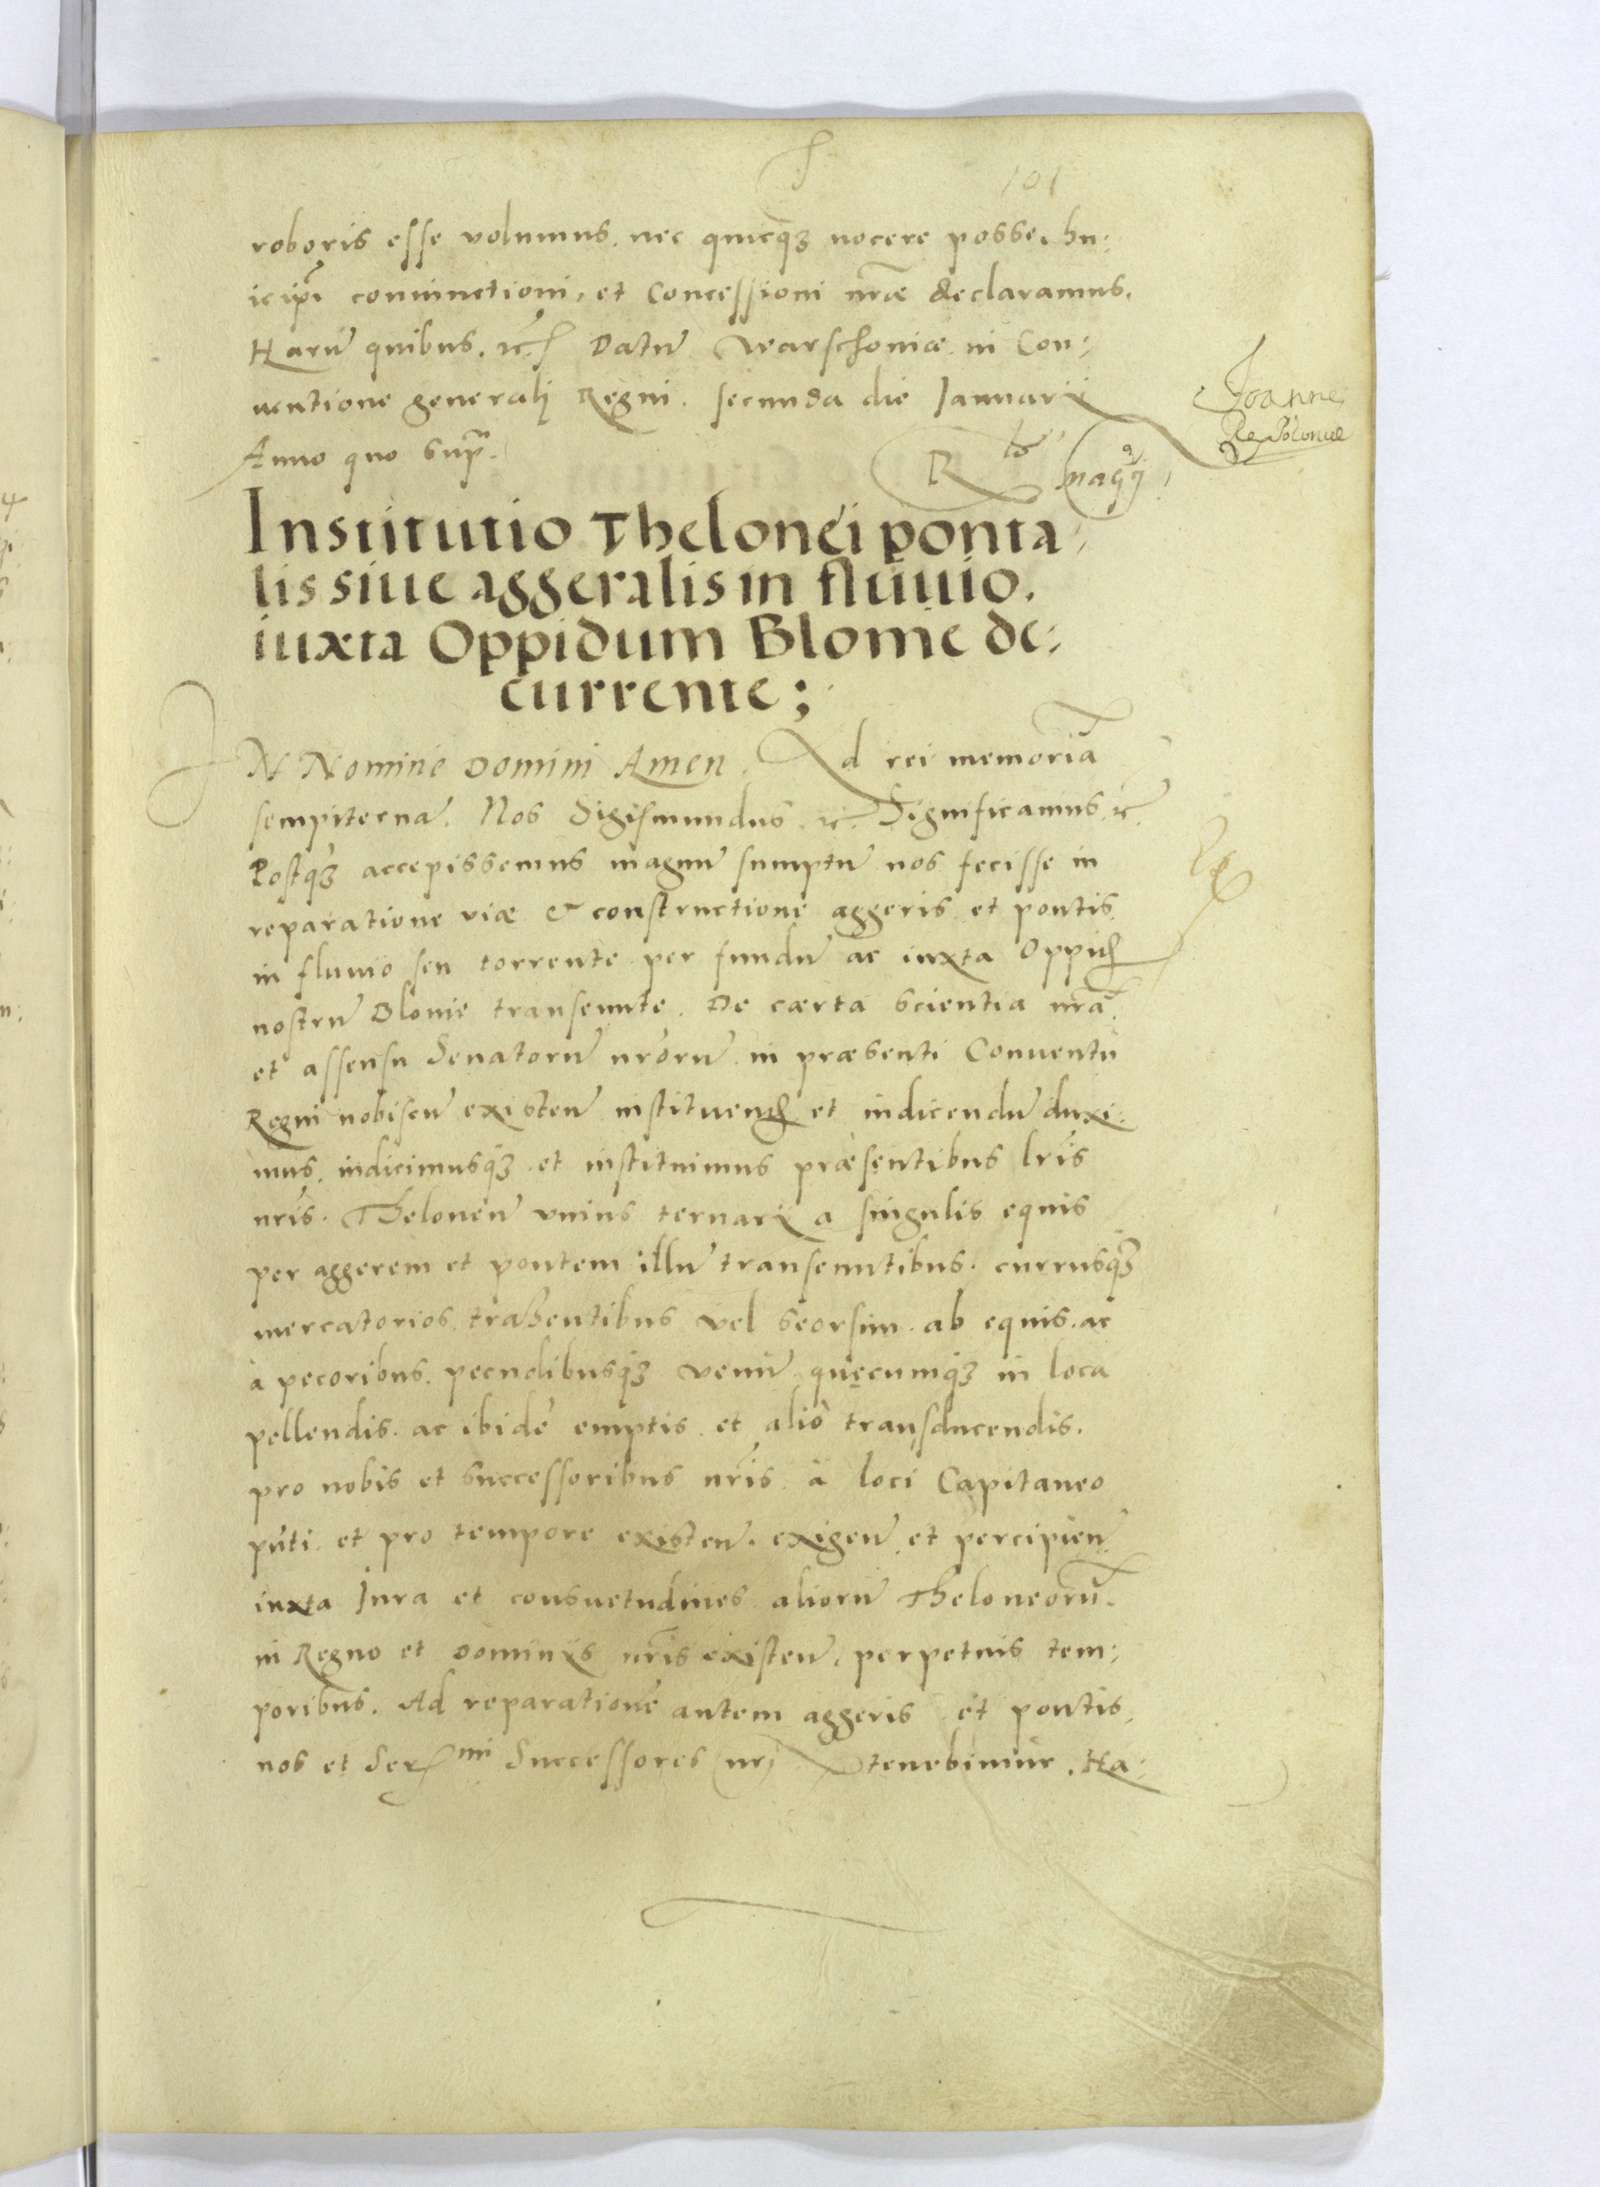 101
roboris esse volumus. nec quicq3 nocere posse. hu:
ic ip̃i coniunctioni, et Concessioni nrãe declaramus.
Harũ quibus. etc. Datũ Warschoniæ in Con:
uentione generalj Regni. secunda die Ianuarii
Anno quo supra.
Rtio
Joanne
Re Poloniæ
Institutio Thelonei ponta:
lis siue aggeralis in fluuio.
iuxta Oppidum Blonie de:
currente;
IN Nomine Domini Amen. Ad rei memoriã
sempiternã. Nos Sigismundus. etc. Significamus. etc.
Postq3 accepissemus magnũ sumptũ nos fecisse in
reparatione viæ & constructione aggeris et pontis
in fluuio seu torrente per fundũ ac iuxta Oppid
nostrũ Blonie transeunte. De cærta scientia nrã
et assensu Senatorũ nrorũ in præsenti Conuentu
Regni nobiscũ existeñ instituend et indicendũ duxi:
mus. indicimusq3 et instituimus præsentibus lris
nris. Theloneũ vnius ternarii a singulis equis
per aggerem et pontem illũ transeuntibus. currusq3
mercatorios trahentibus vel seorsim ab equis. ac
à pecoribus. pecudibusq3 venũ quęcumq3 in loca
pellendis. ac ibidẽ emptis et aliò transducendis.
pro nobis et successoribus nris à loci Capitaneo
pñti et pro tempore existeñ. exigeñ et percipieñ
iuxta Iura et consuetudines aliorũ Theloneorũ.
in Regno et Dominiis nris existeñ. perpetuis tem:
poribus. Ad reparationẽ autem aggeris et pontis
nos et Sermi Successores nrj tenebimur. Ha: